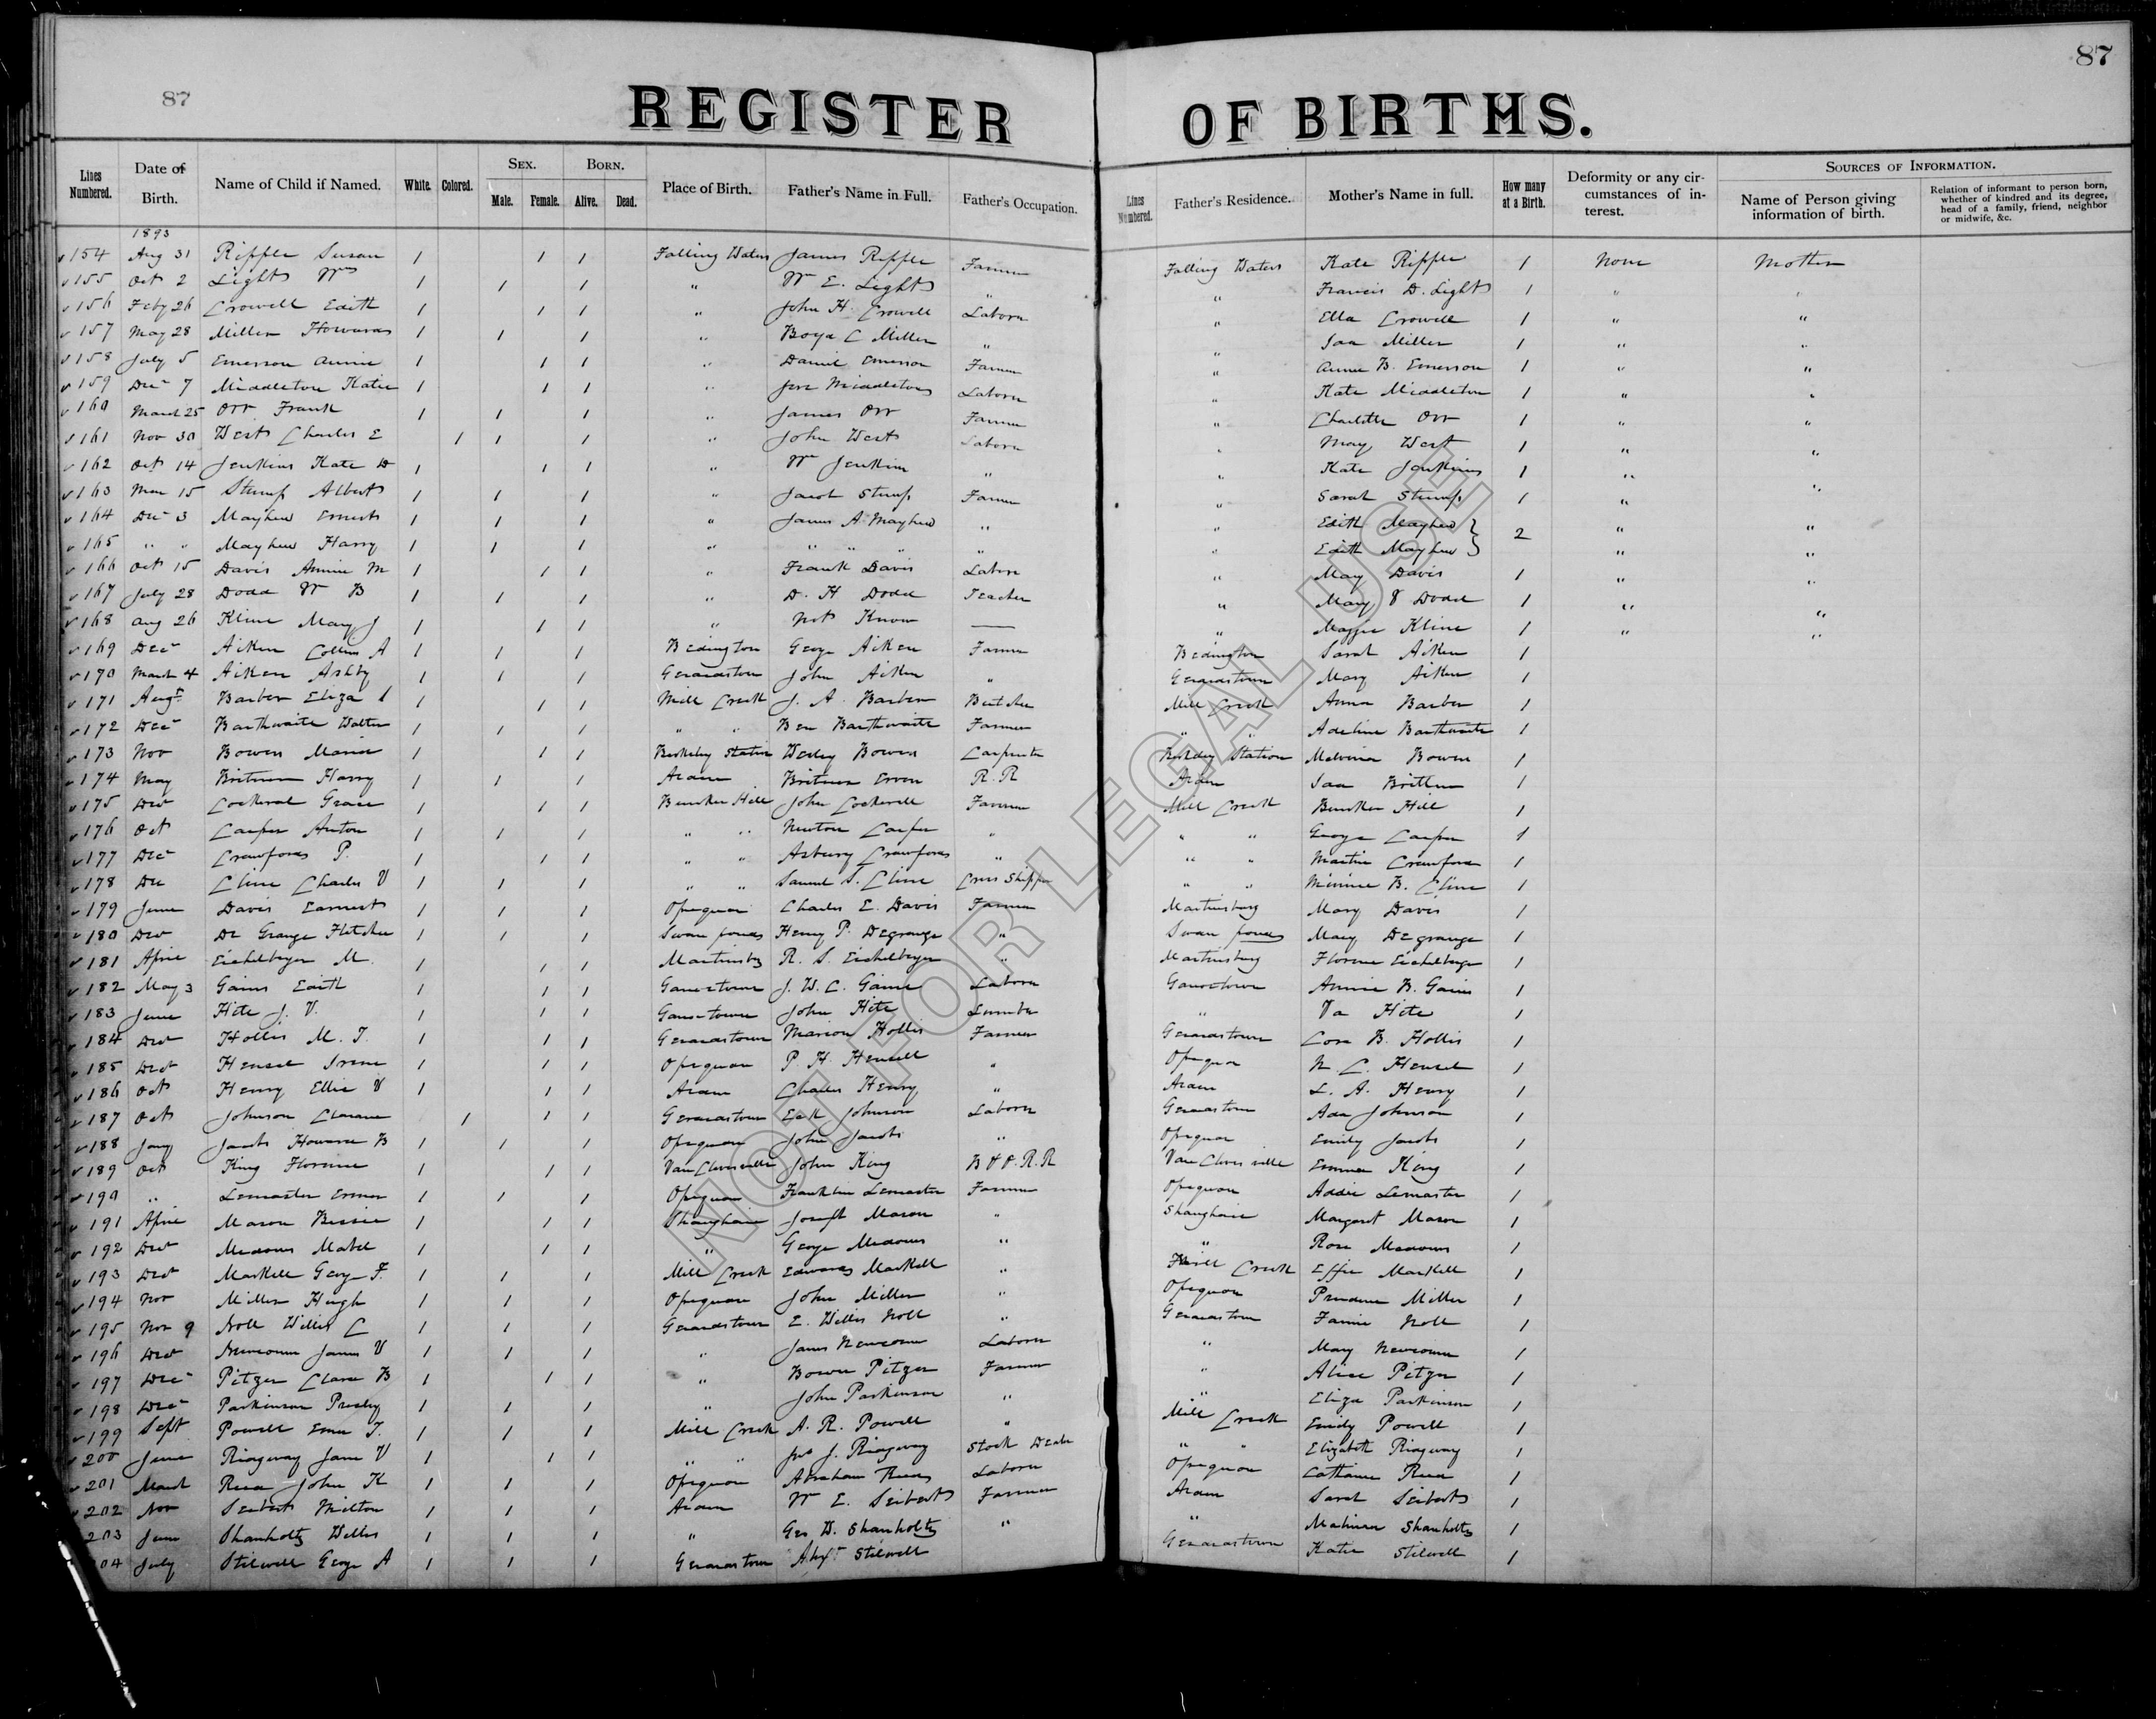 87
87
REGISTER OF BIRTHS.
Lines Numbered. Date of Birth. Name of Child if Named. White. Colored. Sex. Male. Female. Born. Alive. Dead. Place of Birth. Father's Name in Full. Father's Occupation. Lines Numbered. Father's Residence. Mother's Name in full. How many at a Birth. Deformity or any circumstances of interest. Sources of Information. Name of Person giving information of birth. Relation of informant to person born, whether of kindred and its degree, head of a family, friend, neighbor or midwife, &c.
1893
154 Aug 31 Riffle Susan 1 1 1 Falling Waters James Riffle Farmer Falling Waters Kate Riffle 1 None Mother
155 Oct 2 Lights Wm 1 1 1 " Wm E. Lights " " Francis D. Lights 1 " "
156 Feby 26 Crowell Edith 1 1 1 " John H. Crowell Laborer " Ella Crowell 1 " "
157 May 28 Miller Howard 1 1 1 " Boyd C Miller " " Ida Miller 1 " "
158 July 5 Emerson Annie 1 1 1 " Daniel Emerson Farmer " Annie B. Emerson 1 " "
159 Dec 7 Middleton Katie 1 1 1 " Middleton Laborer " Kate Middleton 1 " "
160 March 25 Orr Frank 1 1 1 " James Orr Farmer " Charlotte Orr 1 " "
161 Nov 30 West Charles E 1 1 1 " John West Laborer " May West 1 " "
162 Oct 14 Jenkins Kate D 1 1 1 " Wm Jenkins " " Kate Jenkins 1 " "
163 Mar 15 Stump Albert 1 1 1 " Jacob Stump Farmer " Sarah Stump 1 " "
164 Dec 3 Mayhew Ernest 1 1 1 " James A Mayhew " " Edith Mayhew } 2 " "
165 " " Mayhew Harry 1 1 1 " " " " " " Edith Mayhew } " "
166 Oct 15 Davis Annie M 1 1 1 " Frank Davis Laborer " May Davis 1 " "
167 July 28 Dodd W B 1 1 1 " D. H Dodd Teacher " Mary V Dodd 1 " "
168 Aug 26 Kline May J 1 1 1 " Not Know — " Maggie Kline 1 " "
169 Dec Aiken Collins A 1 1 1 Bedington George Aiken Farmer Bedington Sarah Aiken 1
170 March 4 Aiken Ashby 1 1 1 Gerardstown John Aiken " Gerardstown Mary Aiken 1
171 Augt Barber Eliza 1 1 1 Mill Creek J. A. Barber Butcher Mill Creek Anna Barber 1
172 Dec Barthwaite Walter 1 1 1 " " Ben Barthwaite Farmer " " Adeline Barthwaite 1
173 Nov Bowers 1 1 1 Berkeley Station Wesley Bowers Carpenter Berkeley Station Melvina Bowers 1
174 May Britner Harry 1 1 1 Arden Britner R. R Arden Ida Brittner 1
175 Dec Cockeral Grace 1 1 1 Bunker Hill John Cockerell Farmer Mill Creek Bunker Hill 1
176 Oct Carper 1 1 1 " " Newton Carper " " " George Carper 1
177 Dec Crawford P. 1 1 1 " " Asbury Crawford " " " Crawford 1
178 Dec Cline Charles V 1 1 1 " " Samuel S. Cline " " Minnie B. Cline 1
179 June Davis Earnest 1 1 1 Opequon Charles E. Davis Farmer Martinsburg Mary Davis 1
180 Dec De Grange Fletcher 1 1 1 Swan ponds Henry P. Degrange " Swan ponds Mary Degrange 1
181 April Eichelberger M. 1 1 1 Martinsbg R. S. Eichelberger " Martinsburg Florence Eichelberger 1
182 May 3 Gains Edith 1 1 1 Ganostown J. W. C. Gains Laborer Ganostown Annie B. Gains 1
183 June Hite J. V. 1 1 1 Ganotown John Hite Lumber " Va Hite 1
184 Dec Hollis M. T. 1 1 1 Gerardstown Marion Hollis Farmer Gerardstown Cora B. Hollis 1
185 Dec Hensel Irene 1 1 1 Opequon P. H. Hensell " Opequon N C. Hensel 1
186 Oct Henry Ellie V 1 1 1 Arden Charles Henry " Arden L. A. Henry 1
187 Oct Johnson 1 1 1 Gerardstown Johnson Laborer Gerardstown Ada Johnson 1
188 Jany Jacobs Howard B 1 1 1 Opequon John Jacobs " Opequon Emily Jacobs 1
189 Oct King Florence 1 1 1 Van Clevesville John King B & O. R. R Van Clevesville Emma King 1
190 " Lemaster 1 1 1 Opequon Franklin Lemaster Farmer Opequon Addie Lemaster 1
191 April Mason Bessie 1 1 1 Shanghaie Joseph Mason " Shanghaie Margaret Mason 1
192 Dec Medows Mabel 1 1 1 " George Medows " " Rosa Medows 1
193 Dec Markell George F. 1 1 1 Mill Creek Edward Markell " Mill Creek Effie Markell 1
194 Nov Miller Hugh 1 1 1 Opequon John Miller " Opequon Prudence Miller 1
195 Nov 9 Noll Willis C 1 1 1 Gerardstown E. Willis Noll " Gerardstown Fannie Noll 1
196 Dec Newcomer James V 1 1 1 " James Newcomer Laborer " Mary Newcomer 1
197 Dec Pitzer Clara B 1 1 1 " Bower Pitzer Farmer " Alice Pitzer 1
198 Dec Parkinson Presley 1 1 1 " John Parkinson " " Eliza Parkinson 1
199 Sept Powell T. 1 1 1 Mill Creek A. R. Powell " Mill Creek Emily Powell 1
200 June Ridgway Jane V 1 1 1 " " Jno J. Ridgway Stock Dealer " " Elizabeth Ridgway 1
201 March John K 1 1 1 Opequon Abraham Laborer Opequon Catharine 1
202 Nov Seibert Milton 1 1 1 Arden Wm E. Seibert Farmer Arden Sarah Seibert 1
203 June Shanholtz Willis 1 1 1 " Geo W. Shanholtz " " Shanholtz 1
204 July Stilwell George A 1 1 1 Gerardstown Stilwell Gerardstown Katie Stilwell 1
NOT FOR LEGAL USE